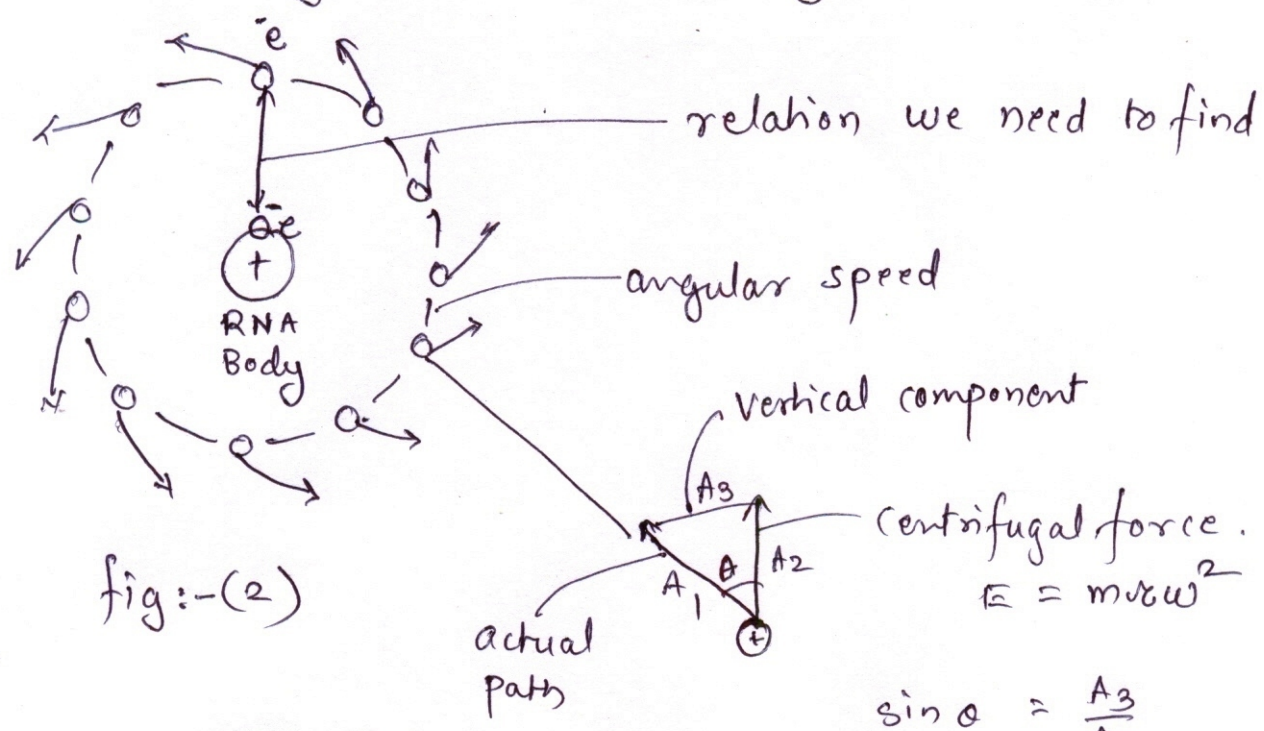 -e
relation we need to find
-e
+
RNA
Body
angular speed
vertical component
A3
centrifugal force.
θ
A2
E = mrω²
A1
+
fig:-(2)
actual
path
sin θ = A3